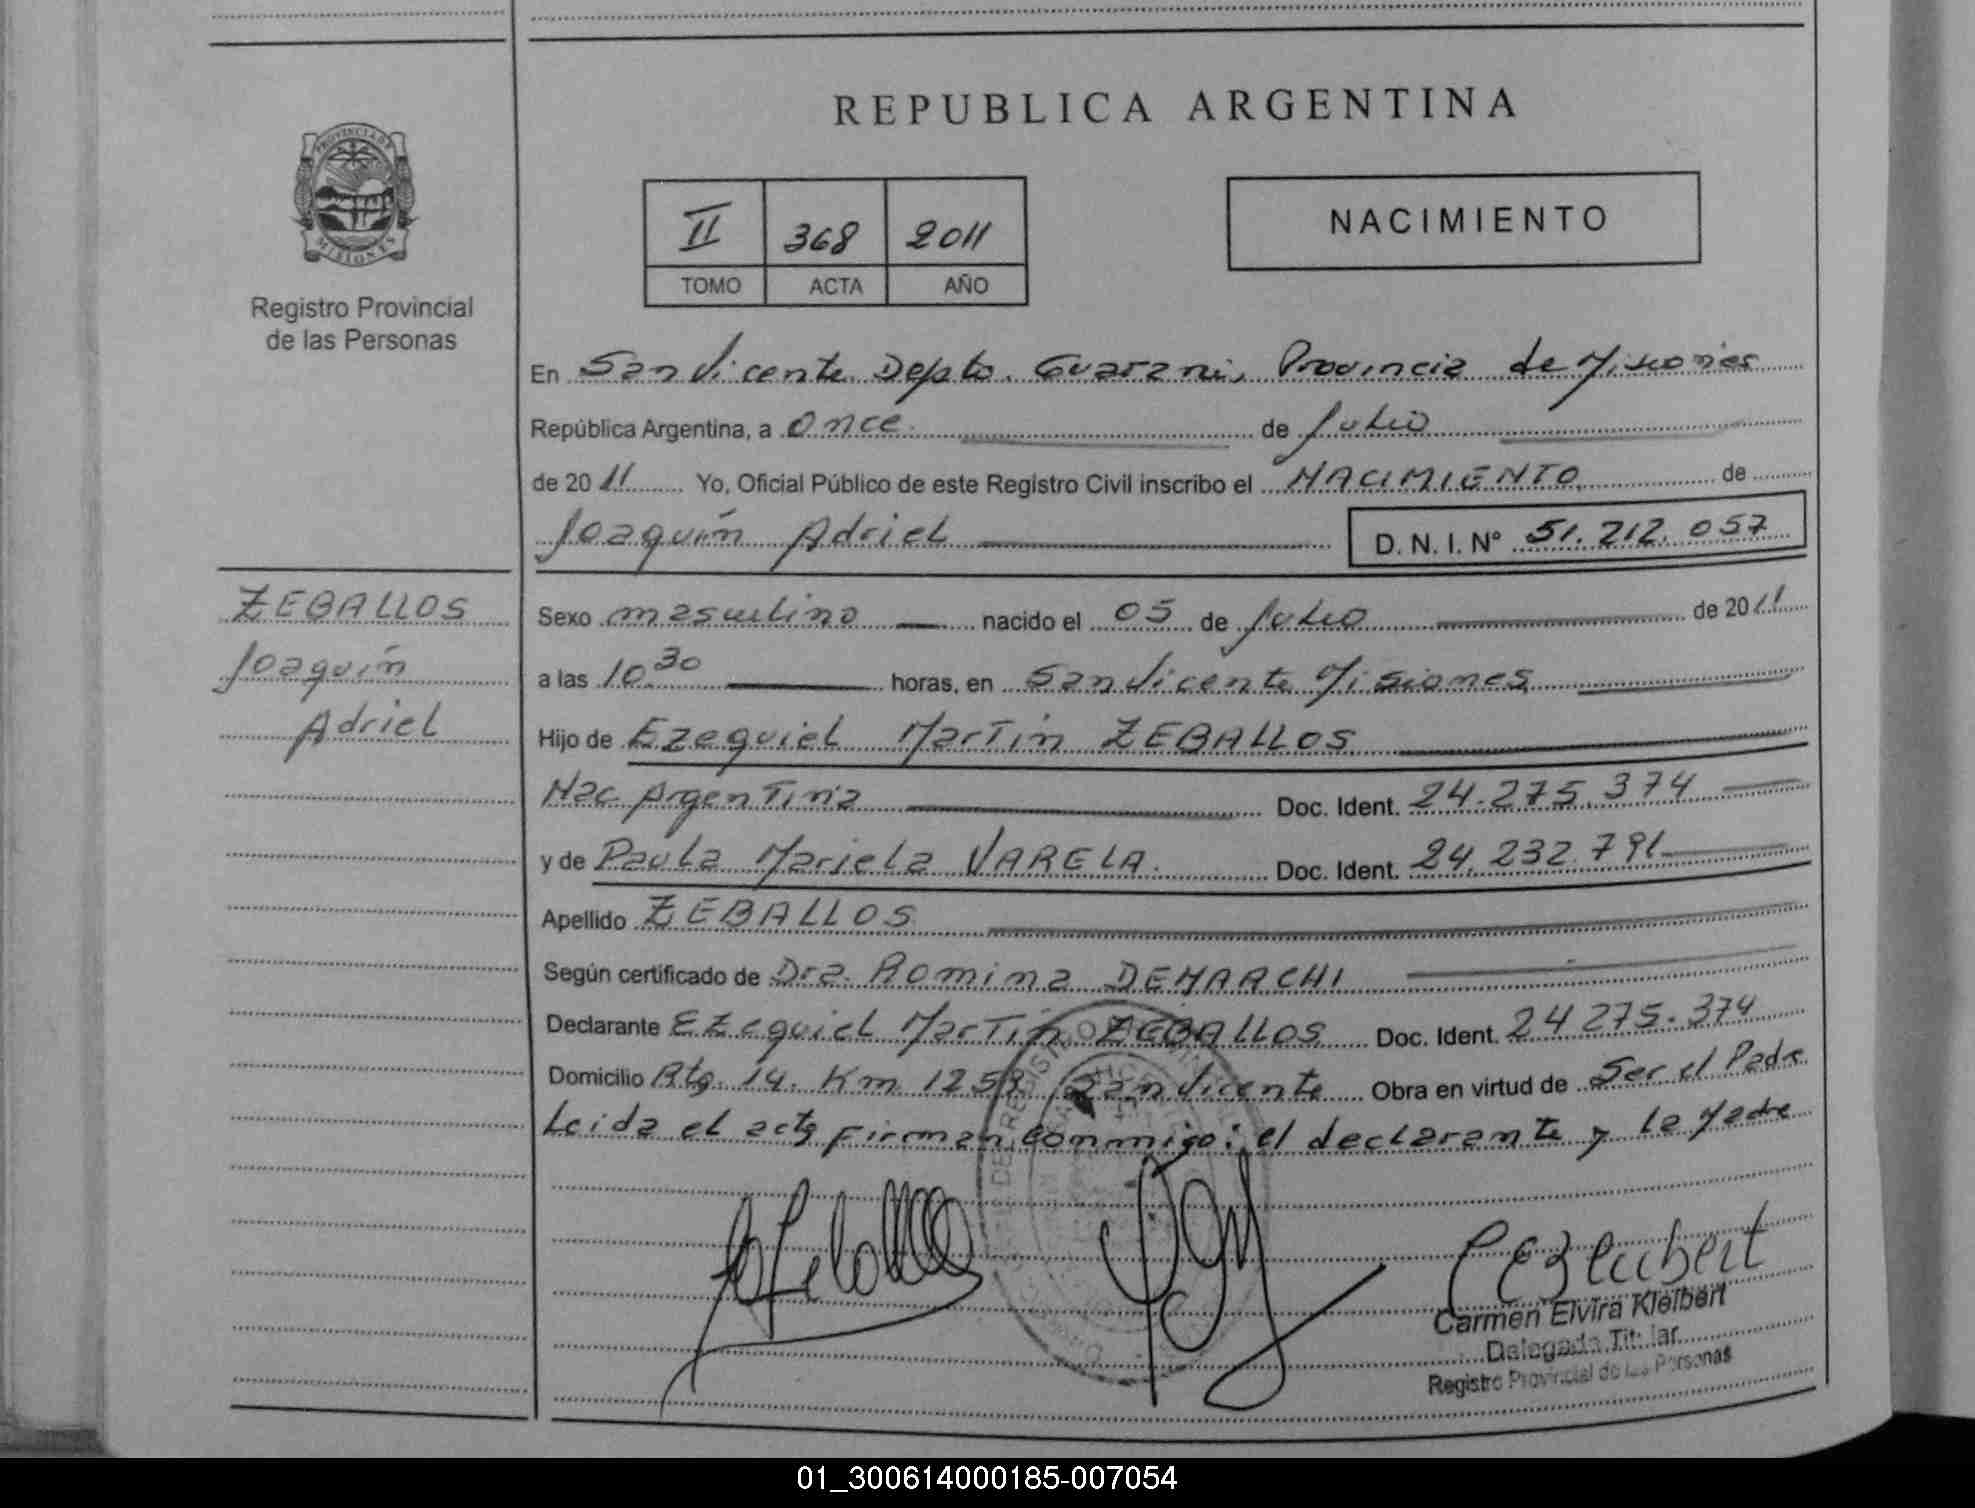 REPUBLICA ARGENTINA
PROVINCIA DE
MISIONES
Registro Provincial
de las Personas
II 368 2011
TOMO ACTA AÑO
NACIMIENTO
En San Vicente Depto. Guarani, Provincia de Misiones
República Argentina, a once de Julio
de 2011 Yo, Oficial Público de este Registro Civil inscribo el NACIMIENTO de
Joaquín Adriel D. N. I. Nº 51.212.057
ZEBALLOS
Joaquín
Adriel
Sexo masculino nacido el 05 de Julio de 2011
a las 10.30 horas, en San Vicente Misiones
Hijo de Ezequiel Martín ZEBALLOS
Nac. Argentina Doc. Ident. 24.275.374
y de Paula Mariela VARELA. Doc. Ident. 24.232.791
Apellido ZEBALLOS
Según certificado de Dra. Romina DEMARCHI
Declarante Ezequiel Martín ZEBALLOS Doc. Ident. 24 275.374
Domicilio Rta. 14. Km 1258 San Vicente Obra en virtud de Ser el Padre
Leida el acta firman conmigo: el declarante y la Madre
Carmen Elvira Kleibert
Delegada Titular
Registro Provincial de las Personas
01_300614000185-007054